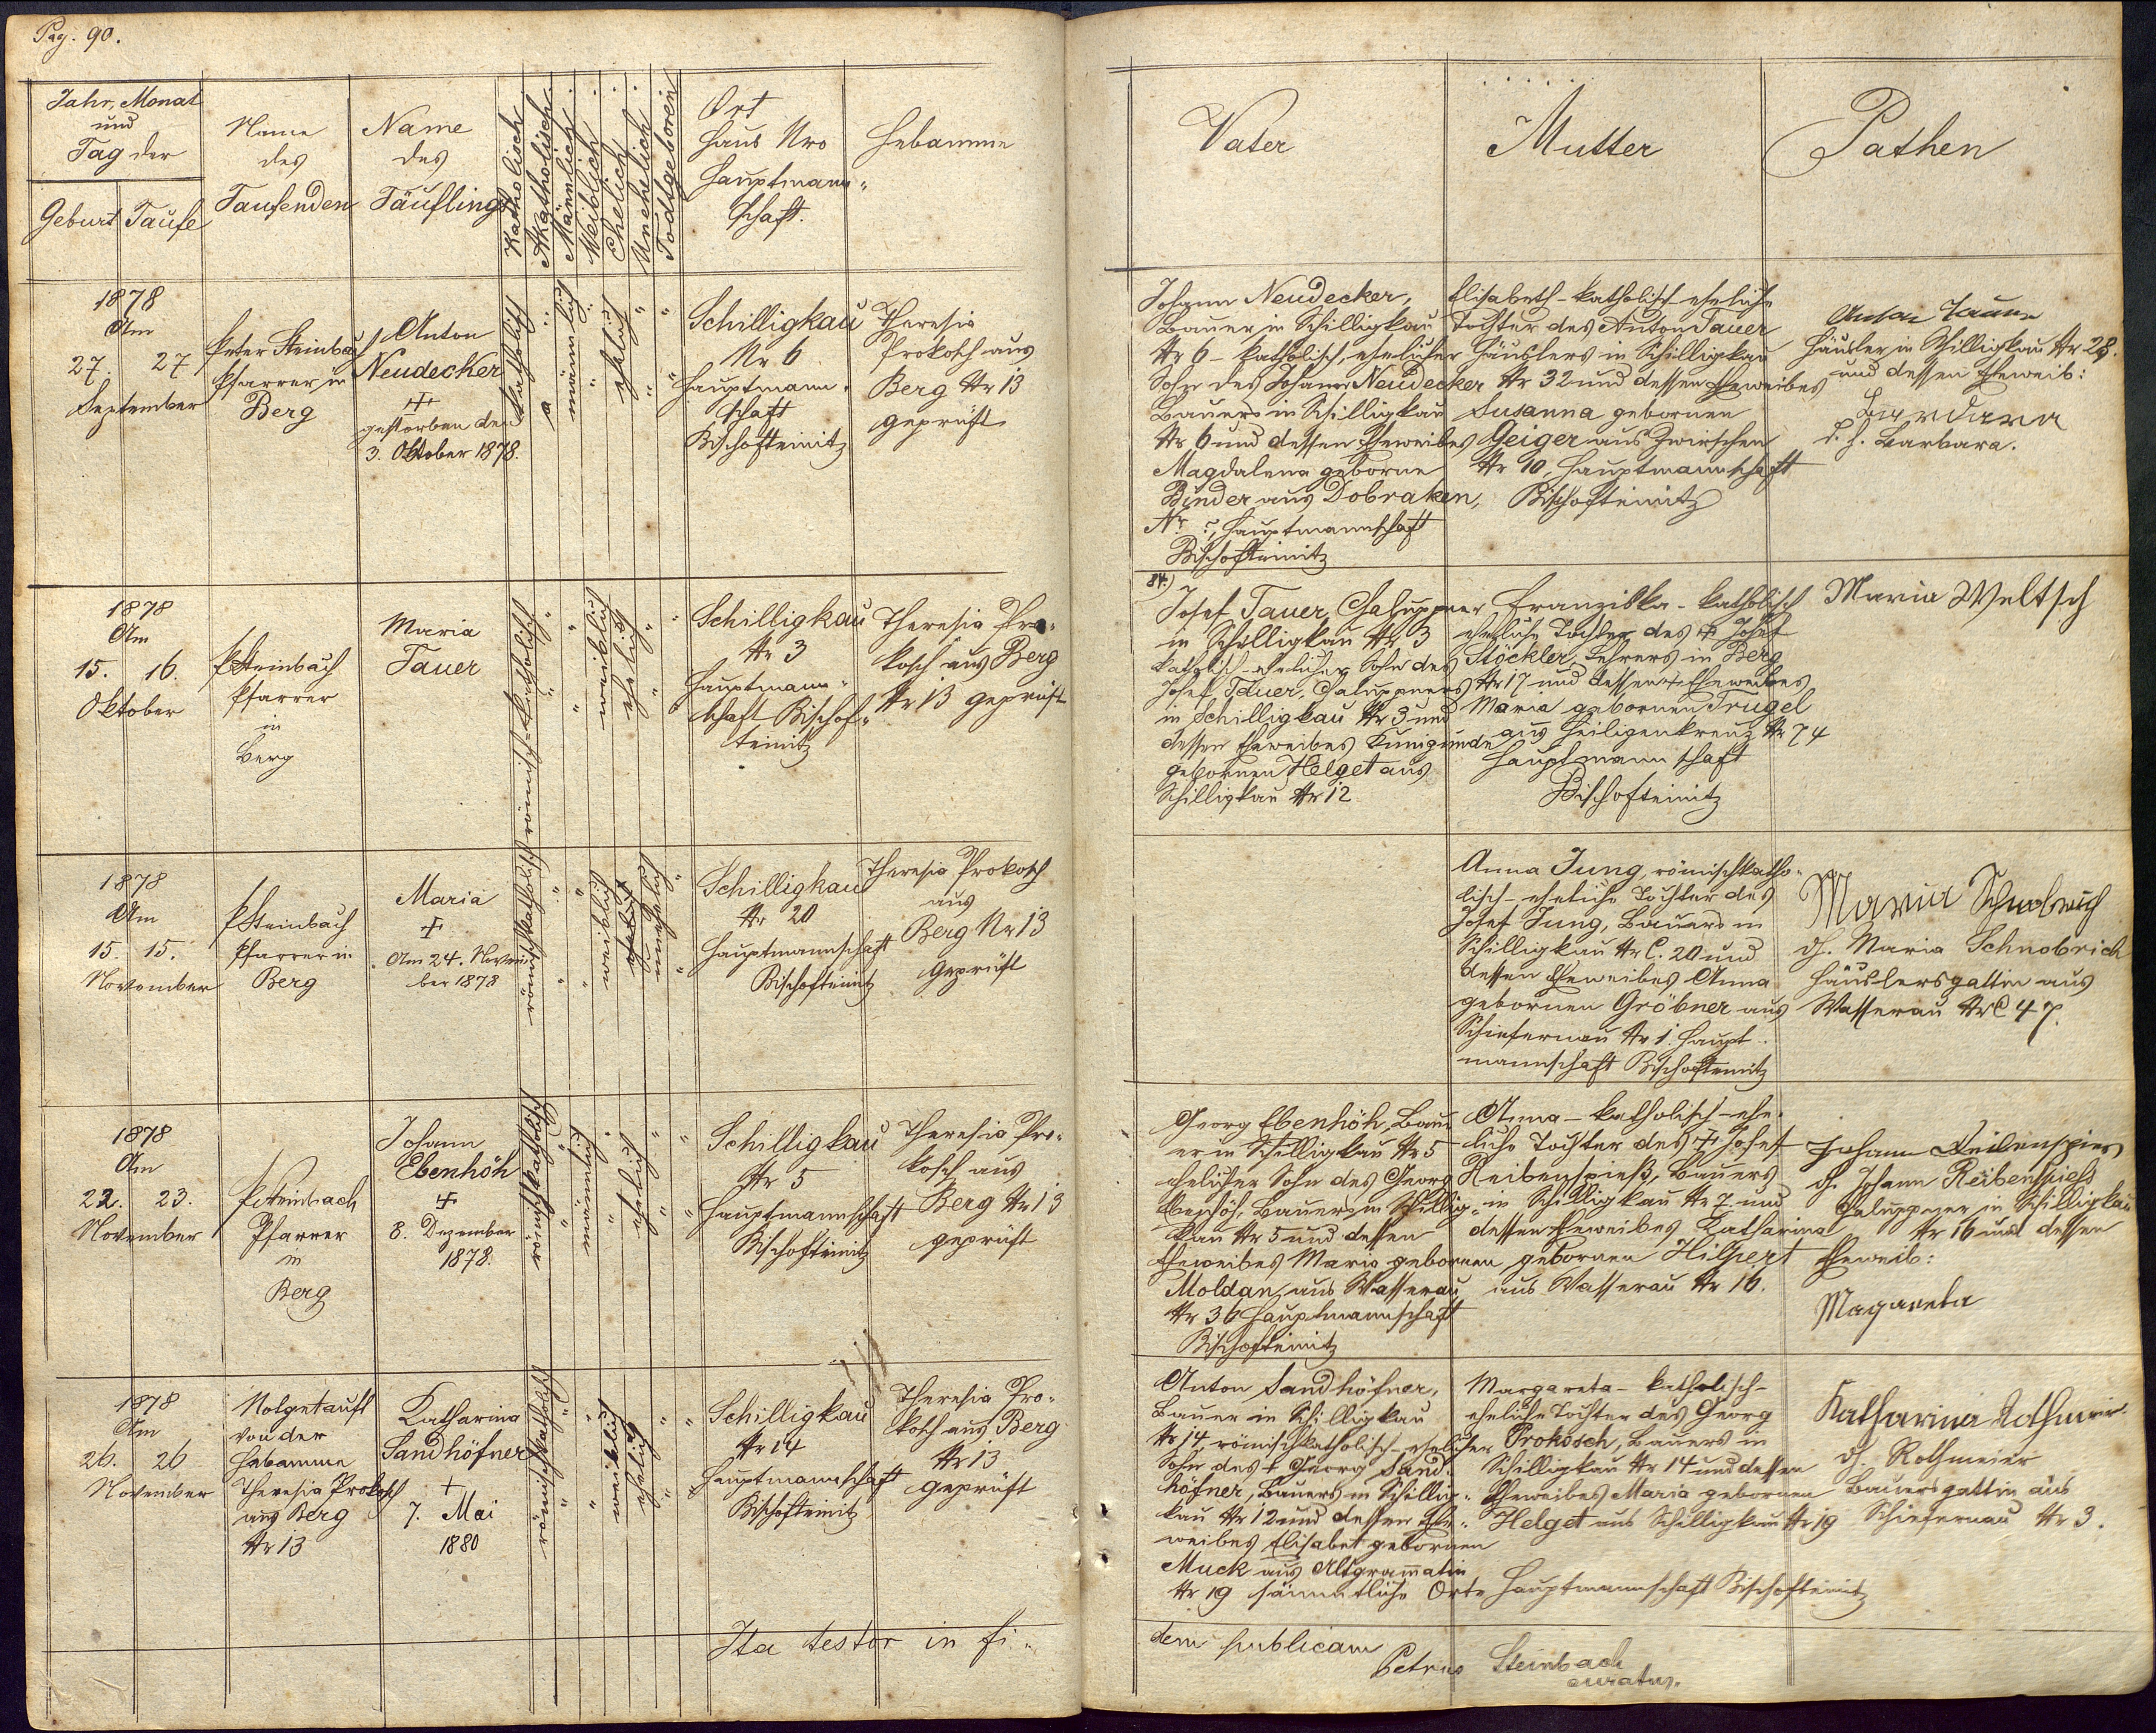 Pag. 90.
Jahr, Monat
und
Tag der
Geburt Taufe
Name
des
Taufenden
Name
des
Täuflings
Katholisch
Akatholisch
Männlich
Weiblich
Ehelich
Unehelich
Todtgeboren
Ort
Haus Nro
Hauptmann-
schaft.
Hebamme
Vater
Mutter
Pathen
1878
Am
27. 27
September
Peter Steinbach
Pfarrer in
Berg
Anton
Neudecker
+
gestorben den
3. Oktober 1878.
katholisch
männlich
ehelich
Schilligkau
Nr 6
Hauptmann-
schaft
Bischofteinitz
Theresia
Prokosch aus
Berg Nr 13
geprüft
Johann Neudecker,
Bauer in Schilligkau
Nr 6 - katholisch, ehelicher
Sohn des Johann Neudecker
Bauers in Schilligkau
Nr 6 und dessen Eheweibes
Magdalena geborne
Binder aus Dobraken,
Nr 5, Hauptmannschaft
Bischofteinitz
Elisabeth - katholisch eheliche
Tochter des Anton Tauer
Häuslers in Schilligkau
Nr 32 und dessen Eheweibes
Susanna gebornen
Geiger aus Zwirschen
Nr 10, Hauptmannschaft
Bischofteinitz
Häusler in Schilligkau Nr 28.
und dessen Eheweib:
d. h. Barbara.
1878
Am
15. 16.
Oktober
PSteinbach
Pfarrer
in
Berg
Maria
Tauer
römisch-katholisch
weiblich
ehelich
Schilligkau
Nr 3
Hauptmann-
schaft Bischof-
teinitz
Theresia Pro-
kosch aus Berg
Nr 13 geprüft
84.)
Josef Tauer, Chaluppner
in Schilligkau Nr 3
katholisch-ehelicher Sohn des
Josef Tauer, Chaluppners
in Schilligkau Nr 3 und
dessen Eheweibes Kunigunde
gebornen Helget aus
Schilligkau Nr 12
Franziska - katholisch
eheliche Tochter des + Josef
Stöckler, Lehrers in Berg
Nr 17 und dessen Eheweibes
Maria gebornen Trugel
aus Heiligenkreuz Nr 74
Hauptmannschaft
Bischofteinitz
Maria Weltsch
1878
Am
15. 15.
November
PSteinbach
Pfarrer in
Berg
Maria
+
Am 24. Novem-
ber 1878
römischkatholisch
weiblich
ehelich
unehelich
Schilligkau
Nr 20
Hauptmannschaft
Bischofteinitz
Theresia Prokosch
aus
Berg Nr 13
Geprüft
Anna Jung, römischkatho-
lisch-eheliche Tochter des
Josef Jung, Bauers in
Schilligkau Nr C. 20 und
dessen Eheweibes Anna
gebornen Gröbner aus
Schiefernau Nr 1. Haupt-
mannschaft Bischofteinitz
Maria Schnobrich
dh. Maria Schnobrich
Häuslersgattin aus
Wasserau NrC 47.
1878
Am
22. 23.
November
PSteinbach
Pfarrer
in
Berg
Johann
Ebenhöh
+
8. Dezember
1878.
römischkatholisch
männlich
ehelich
Schilligkau
Nr 5
Hauptmannschaft
Bischofteinitz
Theresia Pro-
kosch aus
Berg Nr 13
geprüft
Georg Ebenhöh, Bau-
er in Schilligkau Nr 5
ehelicher Sohn des Georg
Ebenhöh, Bauers in Schillig-
kau Nr 5 und dessen
Eheweibes Maria gebornen
Moldan, aus Wasserau
Nr 36 Hauptmannschaft
Bischofteinitz
Anna - katholisch-ehe-
liche Tochter des + Josef
Reibenspieß, Bauers
in Schilligkau Nr 7 und
dessen Eheweibes Katharina
gebornen Hilpert
aus Wasserau Nr 16.
Johann Reibenspies
dh. Johann Reibenspiess
Chaluppner in Schilligkau
Nr 16 und dessen
Eheweib:
Magareta
1878
Am
26. 26
November
Nothgetauft
von der
Hebamme
Theresia Prokosch
aus Berg
Nr 13
Katharina
Sandhöfner
+
7. Mai
1880
römischkatholisch
weiblich
ehelich
Schilligkau
Nr 14
Hauptmannschaft
Bischofteinitz
Theresia Pro-
kosch aus Berg
Nr 13
geprüft
Anton Sandhöfner,
Bauer in Schilligkau
Nr 14, römischkatholisch-ehelicher
Sohn des + Georg Sand-
höfner, Bauers in Schillig-
kau Nr 12 und dessen Ehe-
weibes Elisabet gebornen
Muck aus Altgramatin
Nr 19 sämmtliche Orte Hauptmannschaft Bischofteinitz
Margareta - katholisch-
eheliche Tochter des Georg
Prokosch, Bauers in
Schilligkau Nr 14 und dessen
Eheweibes Maria gebornen
Helget aus Schilligkau Nr 19
Katharina Rothmeir
dh. Rothmeier
Bauersgattin aus
Schiefernau Nr 3.
Ita testor in fi-
dem publicam
Petrus Steinbach
curatus.